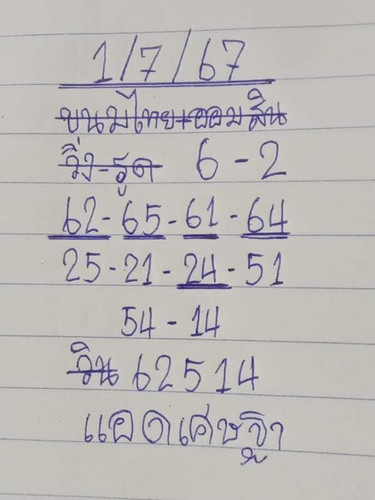 1/7/67
ขนมไทย+ออมสิน
วิ่ง-รูด 6-2
62-65-61-64
25-21-24-51
54-14
วิน 62514
แอดเศษฐา